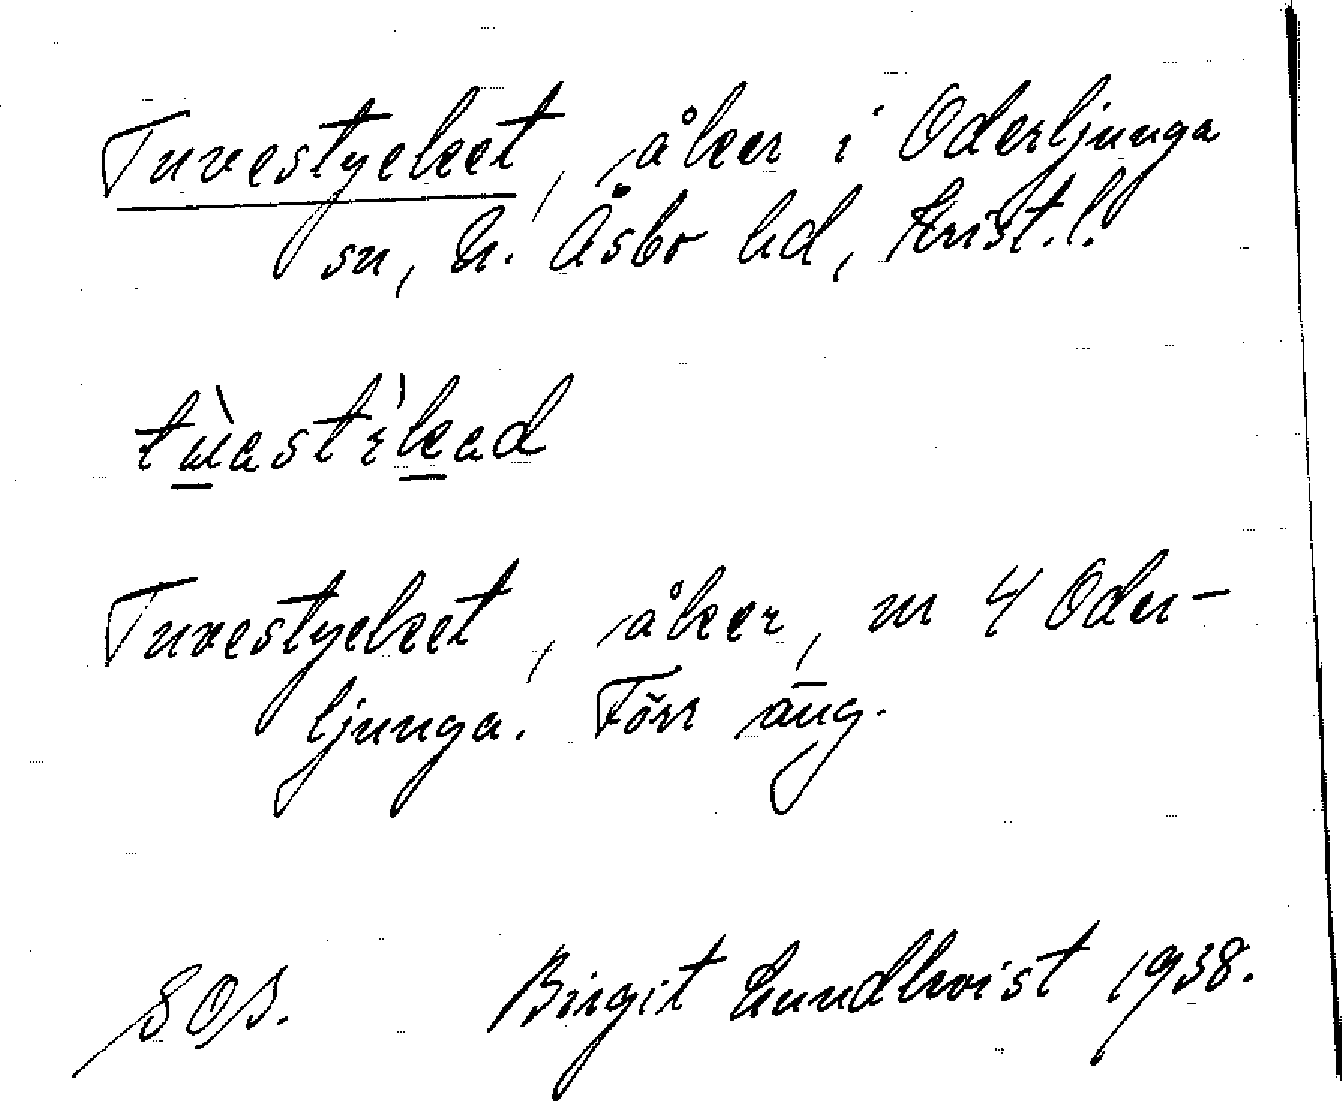 Tuvestycket, åker i Oderljunga
sn, N. Åsbo hd, Krist. l.
tùastỳkad
Tuvestycket, åker, nr 4 Oder-
ljunga. Förr äng.
SOS. Birgit Lundkvist 1938.